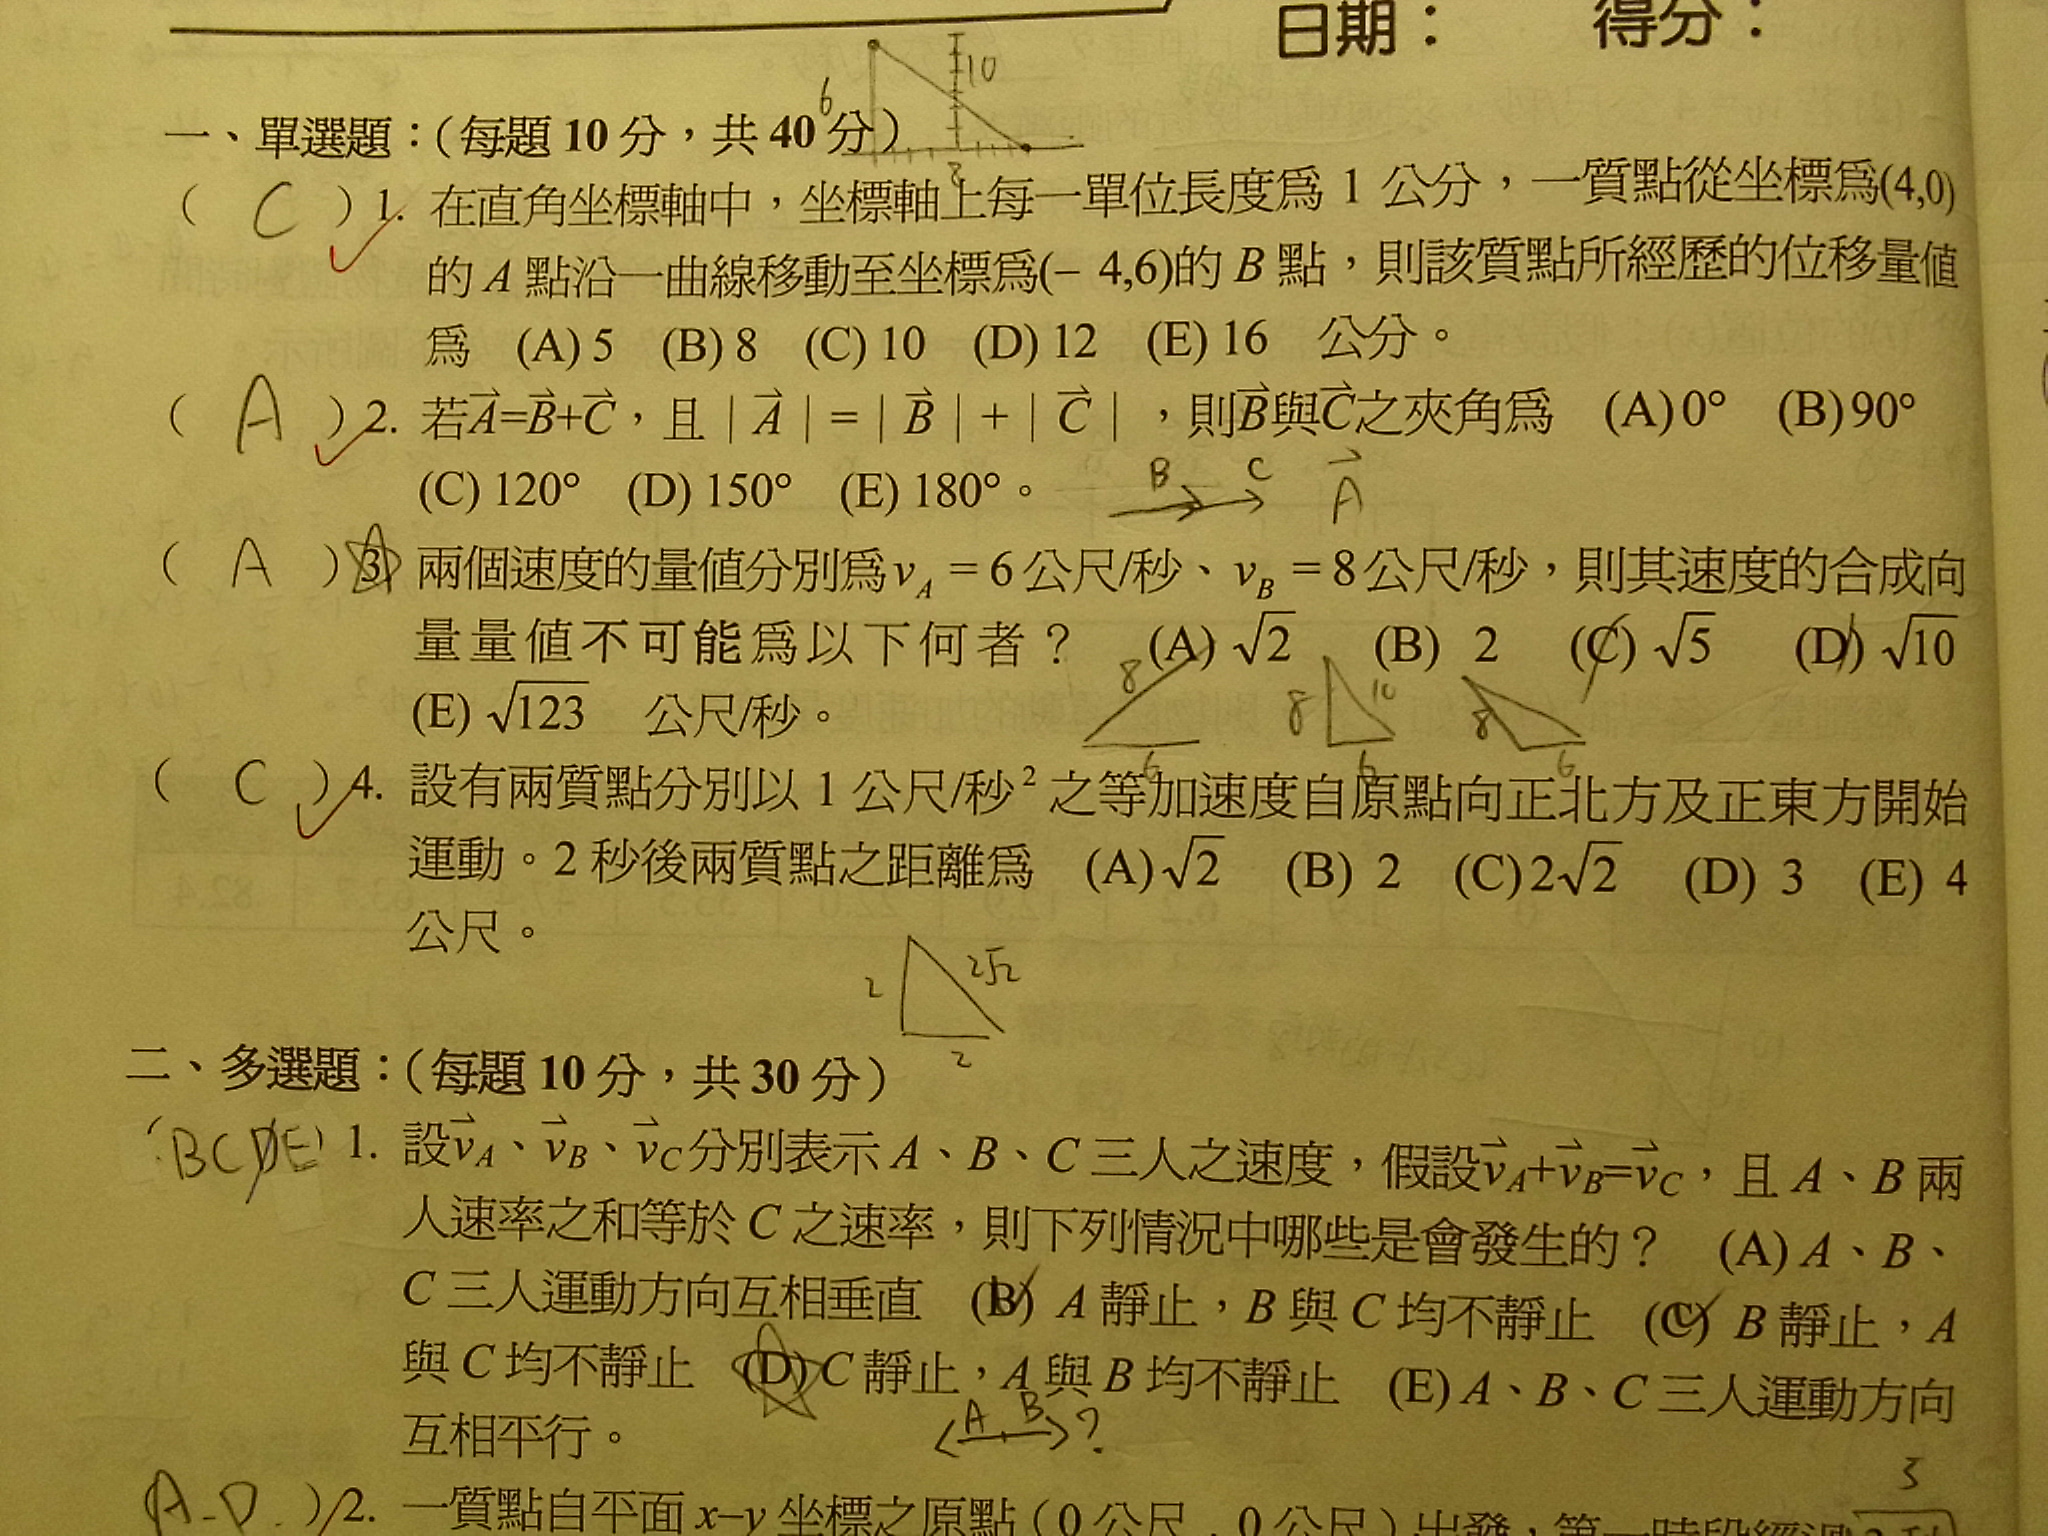 日期： 得分：
10
6
8
一、單選題：（每題 10 分，共 40 分）
( C ) 1. 在直角坐標軸中，坐標軸上每一單位長度為 1 公分，一質點從坐標為(4,0)
的 A 點沿一曲線移動至坐標為(– 4,6)的 B 點，則該質點所經歷的位移量值
為 (A) 5 (B) 8 (C) 10 (D) 12 (E) 16 公分。
( A ) 2. 若A⃗=B⃗+C⃗，且 | A⃗ | = | B⃗ | + | C⃗ | ，則B⃗與C⃗之夾角為 (A) 0° (B) 90°
(C) 120° (D) 150° (E) 180°。
B C A⃗
( A ) 3. 兩個速度的量值分別為 v_A = 6 公尺/秒、v_B = 8 公尺/秒，則其速度的合成向
量量值不可能為以下何者？ (A) √2 (B) 2 (C) √5 (D) √10
(E) √123 公尺/秒。
8 6 8 10 6 8 6
( C ) 4. 設有兩質點分別以 1 公尺/秒² 之等加速度自原點向正北方及正東方開始
運動。2 秒後兩質點之距離為 (A) √2 (B) 2 (C) 2√2 (D) 3 (E) 4
公尺。
2 2√2
2
二、多選題：（每題 10 分，共 30 分）
(BCDE) 1. 設v⃗_A、v⃗_B、v⃗_C分別表示 A、B、C 三人之速度，假設v⃗_A+v⃗_B=v⃗_C，且 A、B 兩
人速率之和等於 C 之速率，則下列情況中哪些是會發生的？ (A) A、B、
C 三人運動方向互相垂直 (B) A 靜止，B 與 C 均不靜止 (C) B 靜止，A
與 C 均不靜止 (D) C 靜止，A 與 B 均不靜止 (E) A、B、C 三人運動方向
互相平行。
A B ?
3
(A.D.) 2. 一質點自平面 x–y 坐標之原點（0 公尺，0 公尺）出發，第一時段經過